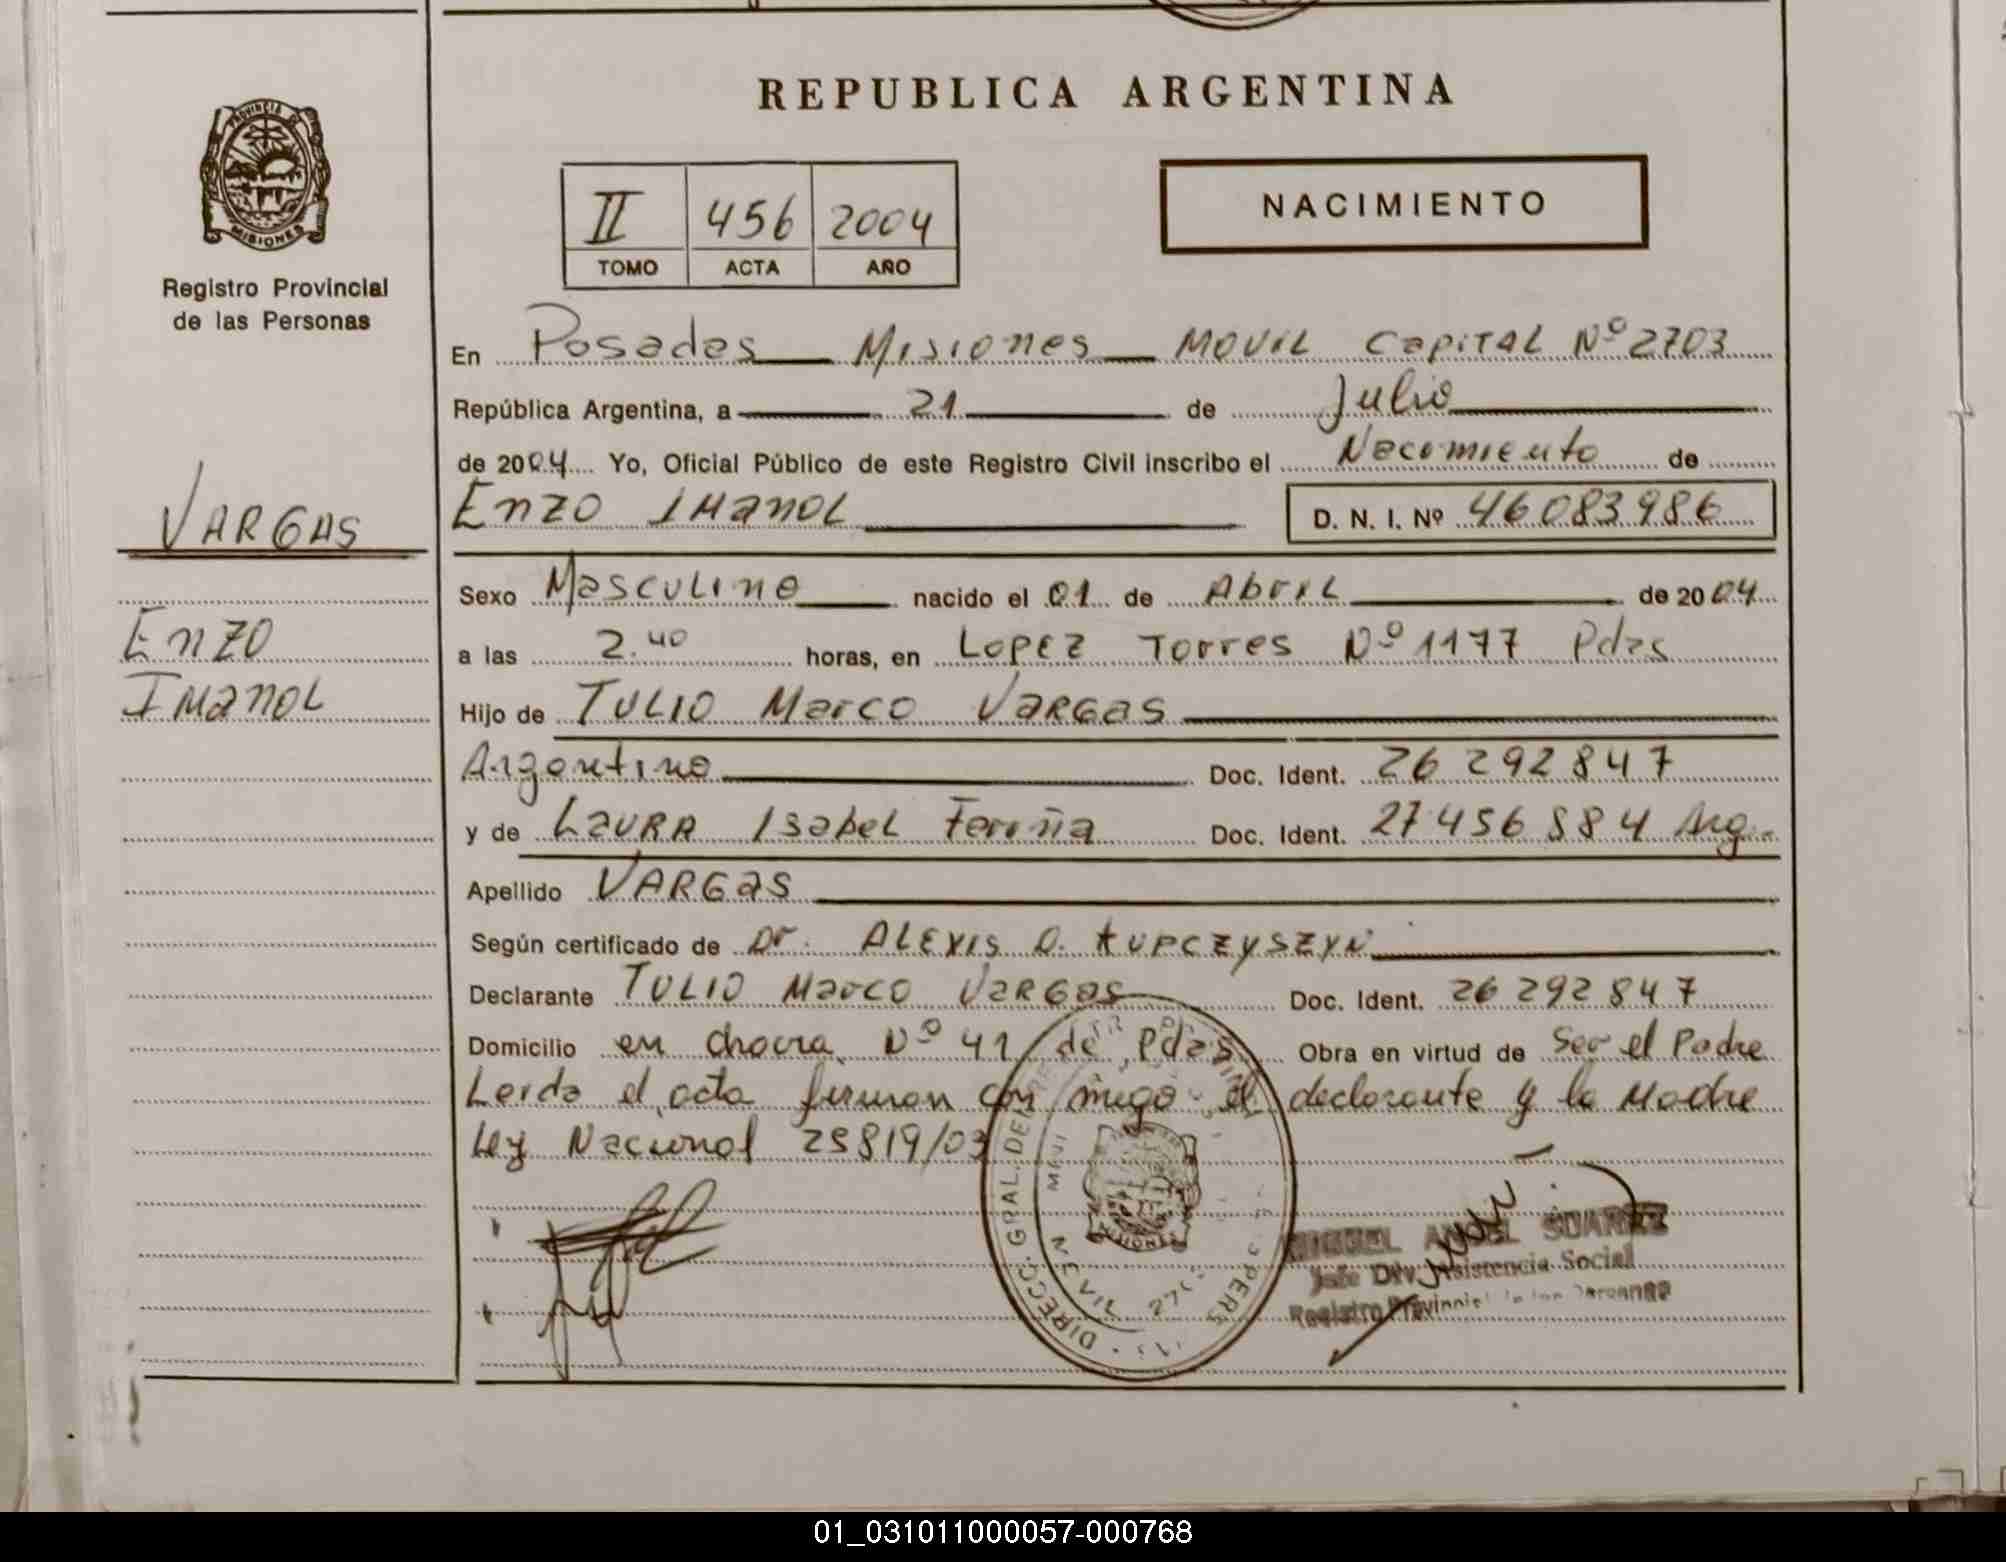 REPUBLICA ARGENTINA
PROVINCIA DE
MISIONES
Registro Provincial
de las Personas
II 456 2004
TOMO ACTA AÑO
NACIMIENTO
En Posadas Misiones MOVIL CapITAL Nº 2703
República Argentina, a 21 de Julio
de 2004 Yo, Oficial Público de este Registro Civil inscribo el Nacimiento de
VARGAS
Enzo Imanol D. N. I. Nº 46083986
Sexo Masculino nacido el 01 de Abril de 2004
Enzo
a las 2.40 horas, en Lopez Torres Nº 1177 Pdas
Imanol
Hijo de TULIO Marco Vargas
Argentino Doc. Ident. 26 292 847
y de Laura Isabel Doc. Ident. 27 456 884 Arg.
Apellido VARGas
Según certificado de Dr. ALEXIS D. KUPCZYSZYN
Declarante TULIO Marco Vargas Doc. Ident. 26 292 847
Domicilio en chacra Nº 41 de Pdas Obra en virtud de Ser el Padre
Leida el acta firman con migo el declarante y la Madre
Ley Nacional 25819/03
DIRECC. GRAL. DE
PERS
MISIONES
MOVIL 270
MIGUEL ANGEL SUAREZ
Jefe Div. Asistencia Social
Registro Provincial de las Personas
01_031011000057-000768